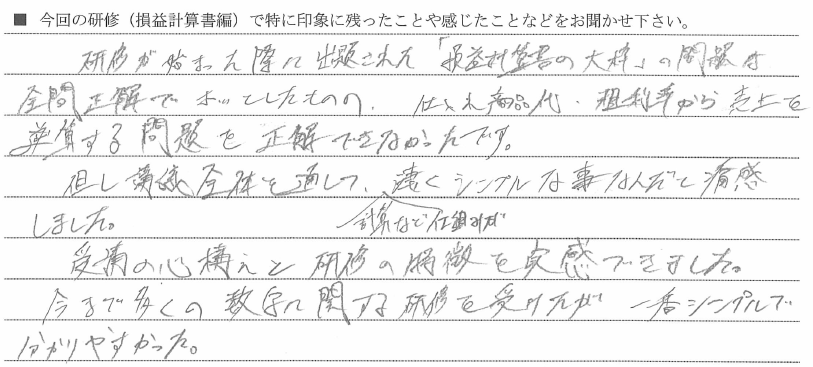 ■ 今回の研修（損益計算書編）で特に印象に残ったことや感じたことなどをお聞かせ下さい。
研修が始まった際に出題された「損益計算書の大枠」の問題は
全問正解でホッとしたものの、仕入れ商品代・粗利率から売上を
逆算する問題を正解できなかったです。
但し講義全体を通して、凄くシンプルな事なんだと痛感
しました。
計算など仕組みが
受講の心構えと研修の特徴を実感できました。
今まで多くの数字に関する研修を受けたが一番シンプルで
分かりやすかった。